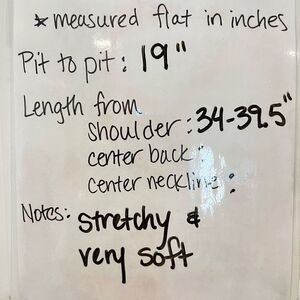 * measured flat in inches
Pit to pit: 19"
Length from
shoulder: 34-39.5"
center back:
center neckline:
Notes: stretchy &
very soft